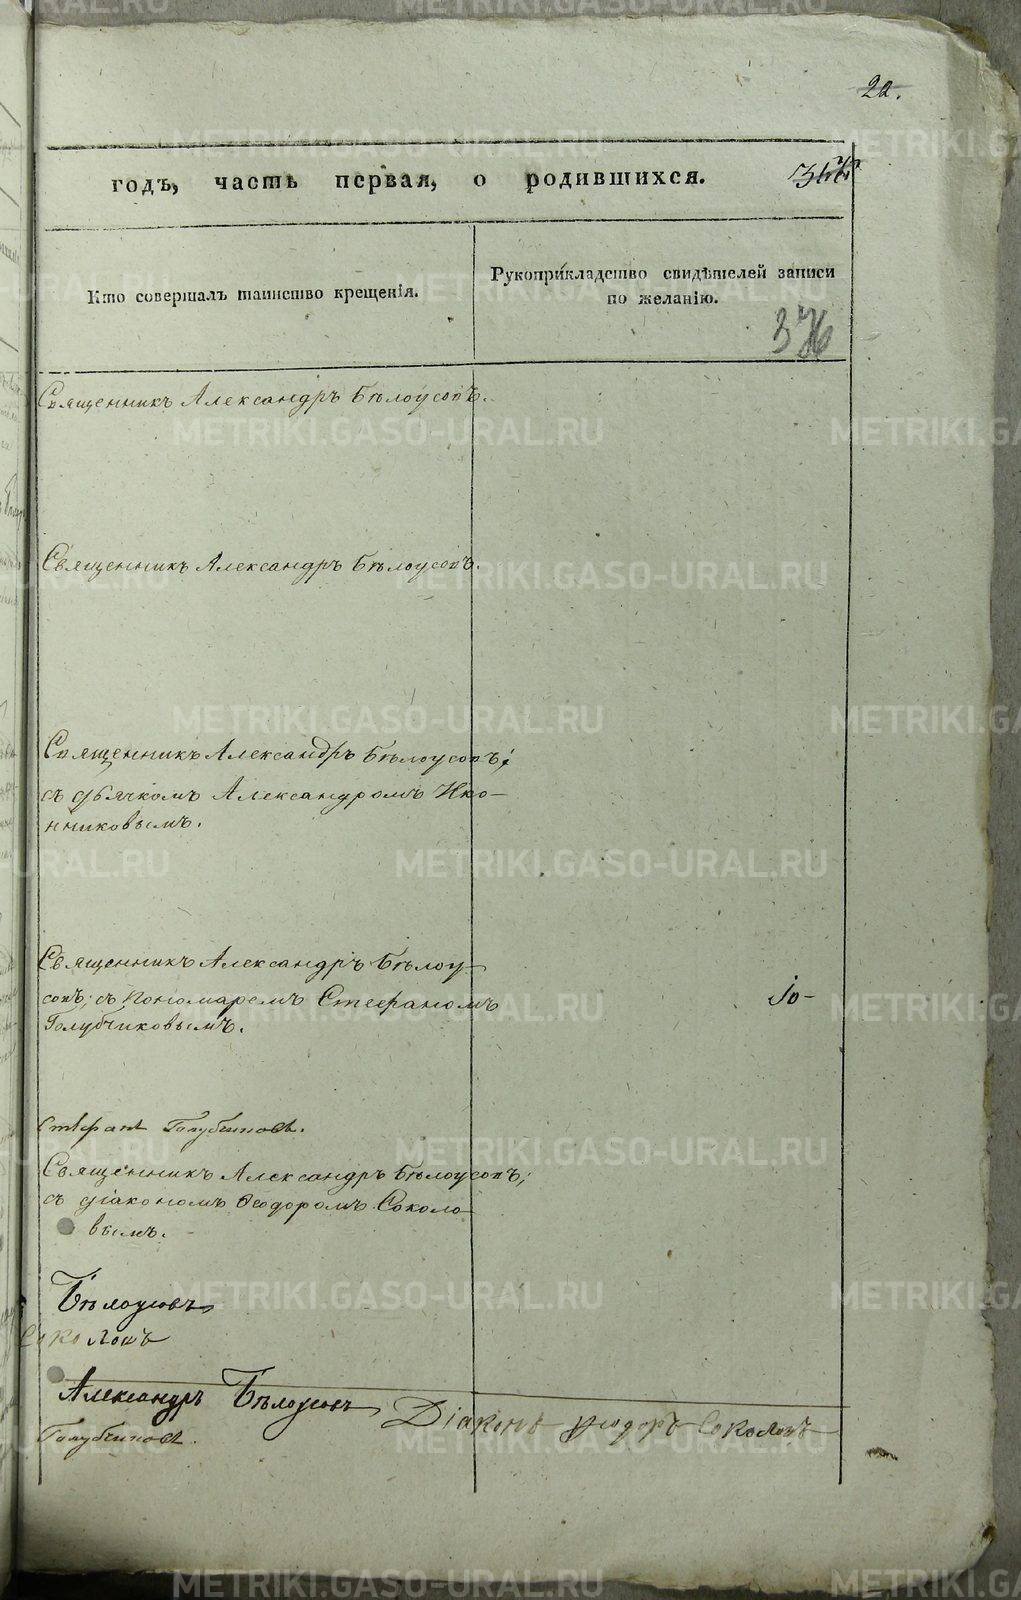 22.
годъ, часть первая, о родившихся.
Кто совершалъ таинство крещенія.
Рукоприкладство свидѣтелей записи
по желанію.
376
Священникъ Александръ Бѣлоусовъ.
Священникъ Александръ Бѣлоусовъ.
Священникъ Александръ Бѣлоусовъ;
съ дьячкомъ Александромъ Ико-
нниковымъ.
Священникъ Александръ Бѣлоу-
совъ; съ Пономаремъ Стефаномъ
Голубчиковымъ.
10-
Стефанъ Голубчиковъ.
Священникъ Александръ Бѣлоусовъ;
съ діакономъ Ѳеодоромъ Соколо
вымъ.
Бѣлоусовъ
Соколовъ
Александръ Бѣлоусовъ Діаконъ Ѳеодоръ Соколовъ
Голубчиковъ.
METRIKI.GASO-URAL.RU